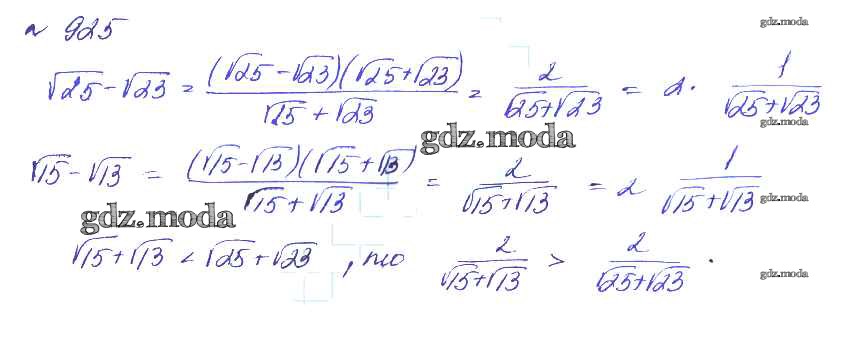 № 925
gdz.moda
√25 - √23 = (√25 - √23)(√25 + √23) / (√25 + √23) = 2 / (√25 + √23) = 2 · 1 / (√25 + √23)
gdz.moda
gdz.moda
√15 - √13 = (√15 - √13)(√15 + √13) / (√15 + √13) = 2 / (√15 + √13) = 2 1 / (√15 + √13)
gdz.moda
gdz.moda
√15 + √13 < √25 + √23, то 2 / (√15 + √13) > 2 / (√25 + √23).
gdz.moda